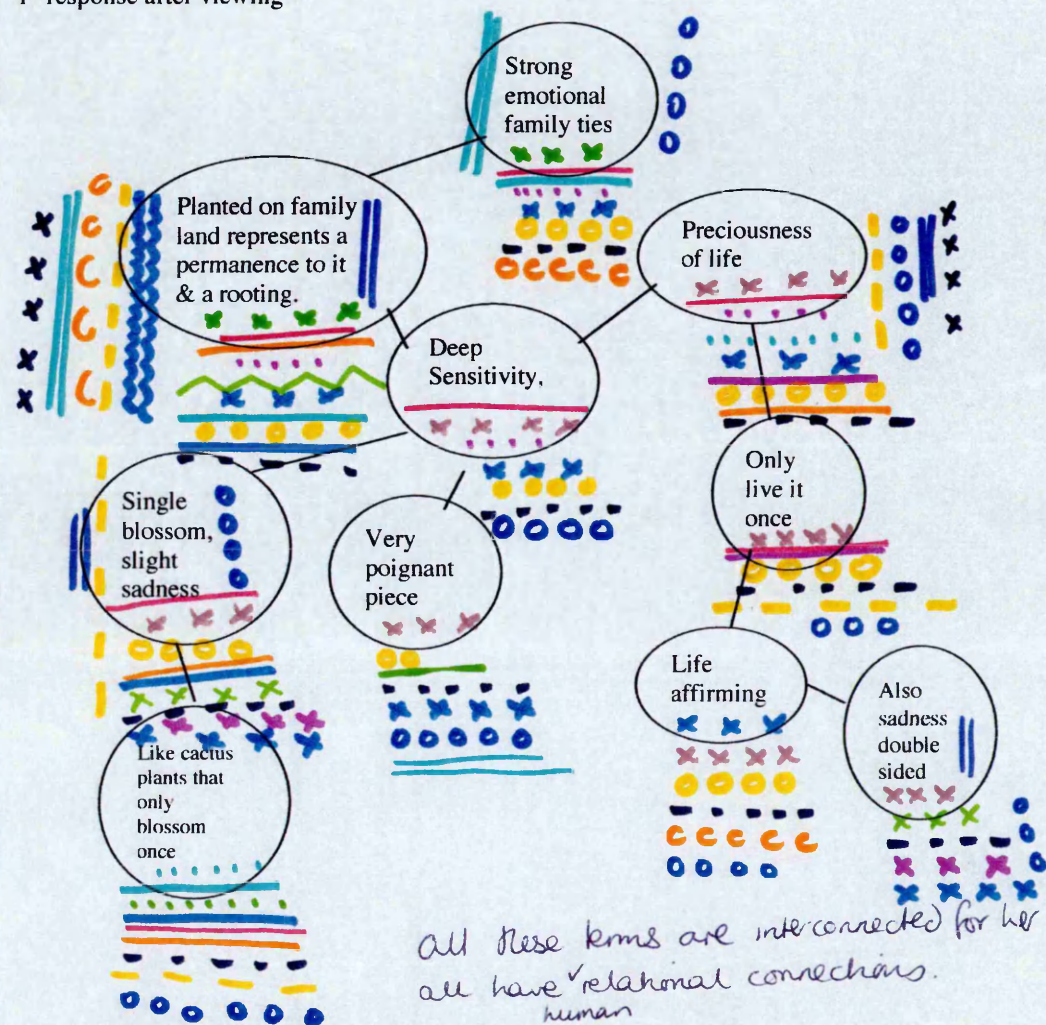 response after viewing
Strong
emotional
family ties
Planted on family
land represents a
permanence to it
& a rooting.
Preciousness
of life
Deep
Sensitivity,
Single
blossom,
slight
sadness
Very
poignant
piece
Only
live it
once
Life
affirming
Also
sadness
double
sided
Like cactus
plants that
only
blossom
once
all these terms are interconnected for her
all have relational connections.
human